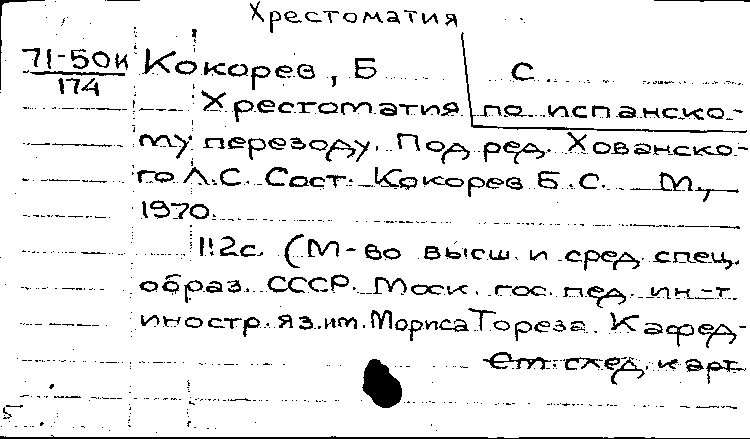 Хрестоматия
71-50к Кокорев, Б С
174
Хрестоматия по испанско-
му переводу. Под ред. Хованско-
го Л.С. Сост. Кокорев Б.С. М.,
1970.
112с. (М-во высш. и сред. спец.
образ. СССР. Моск. гос. пед. ин-т.
иностр. яз. им. Мориса Тореза. Кафед-
См. след. карт
5